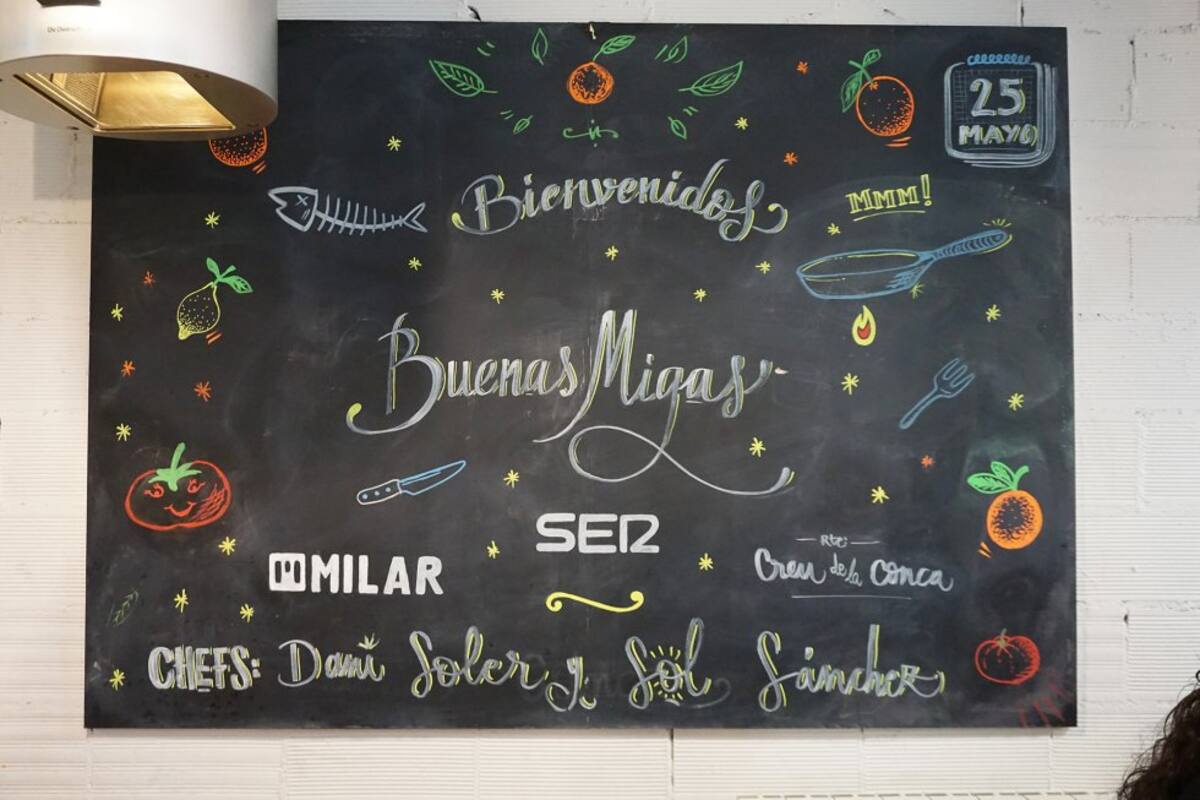 25
MAYO
Bienvenidos
MMM!
Buenas Migas
SER
Rte:
MILAR
Creu de la Conca
CHEFS: Dani Soler y Sol Sánchez